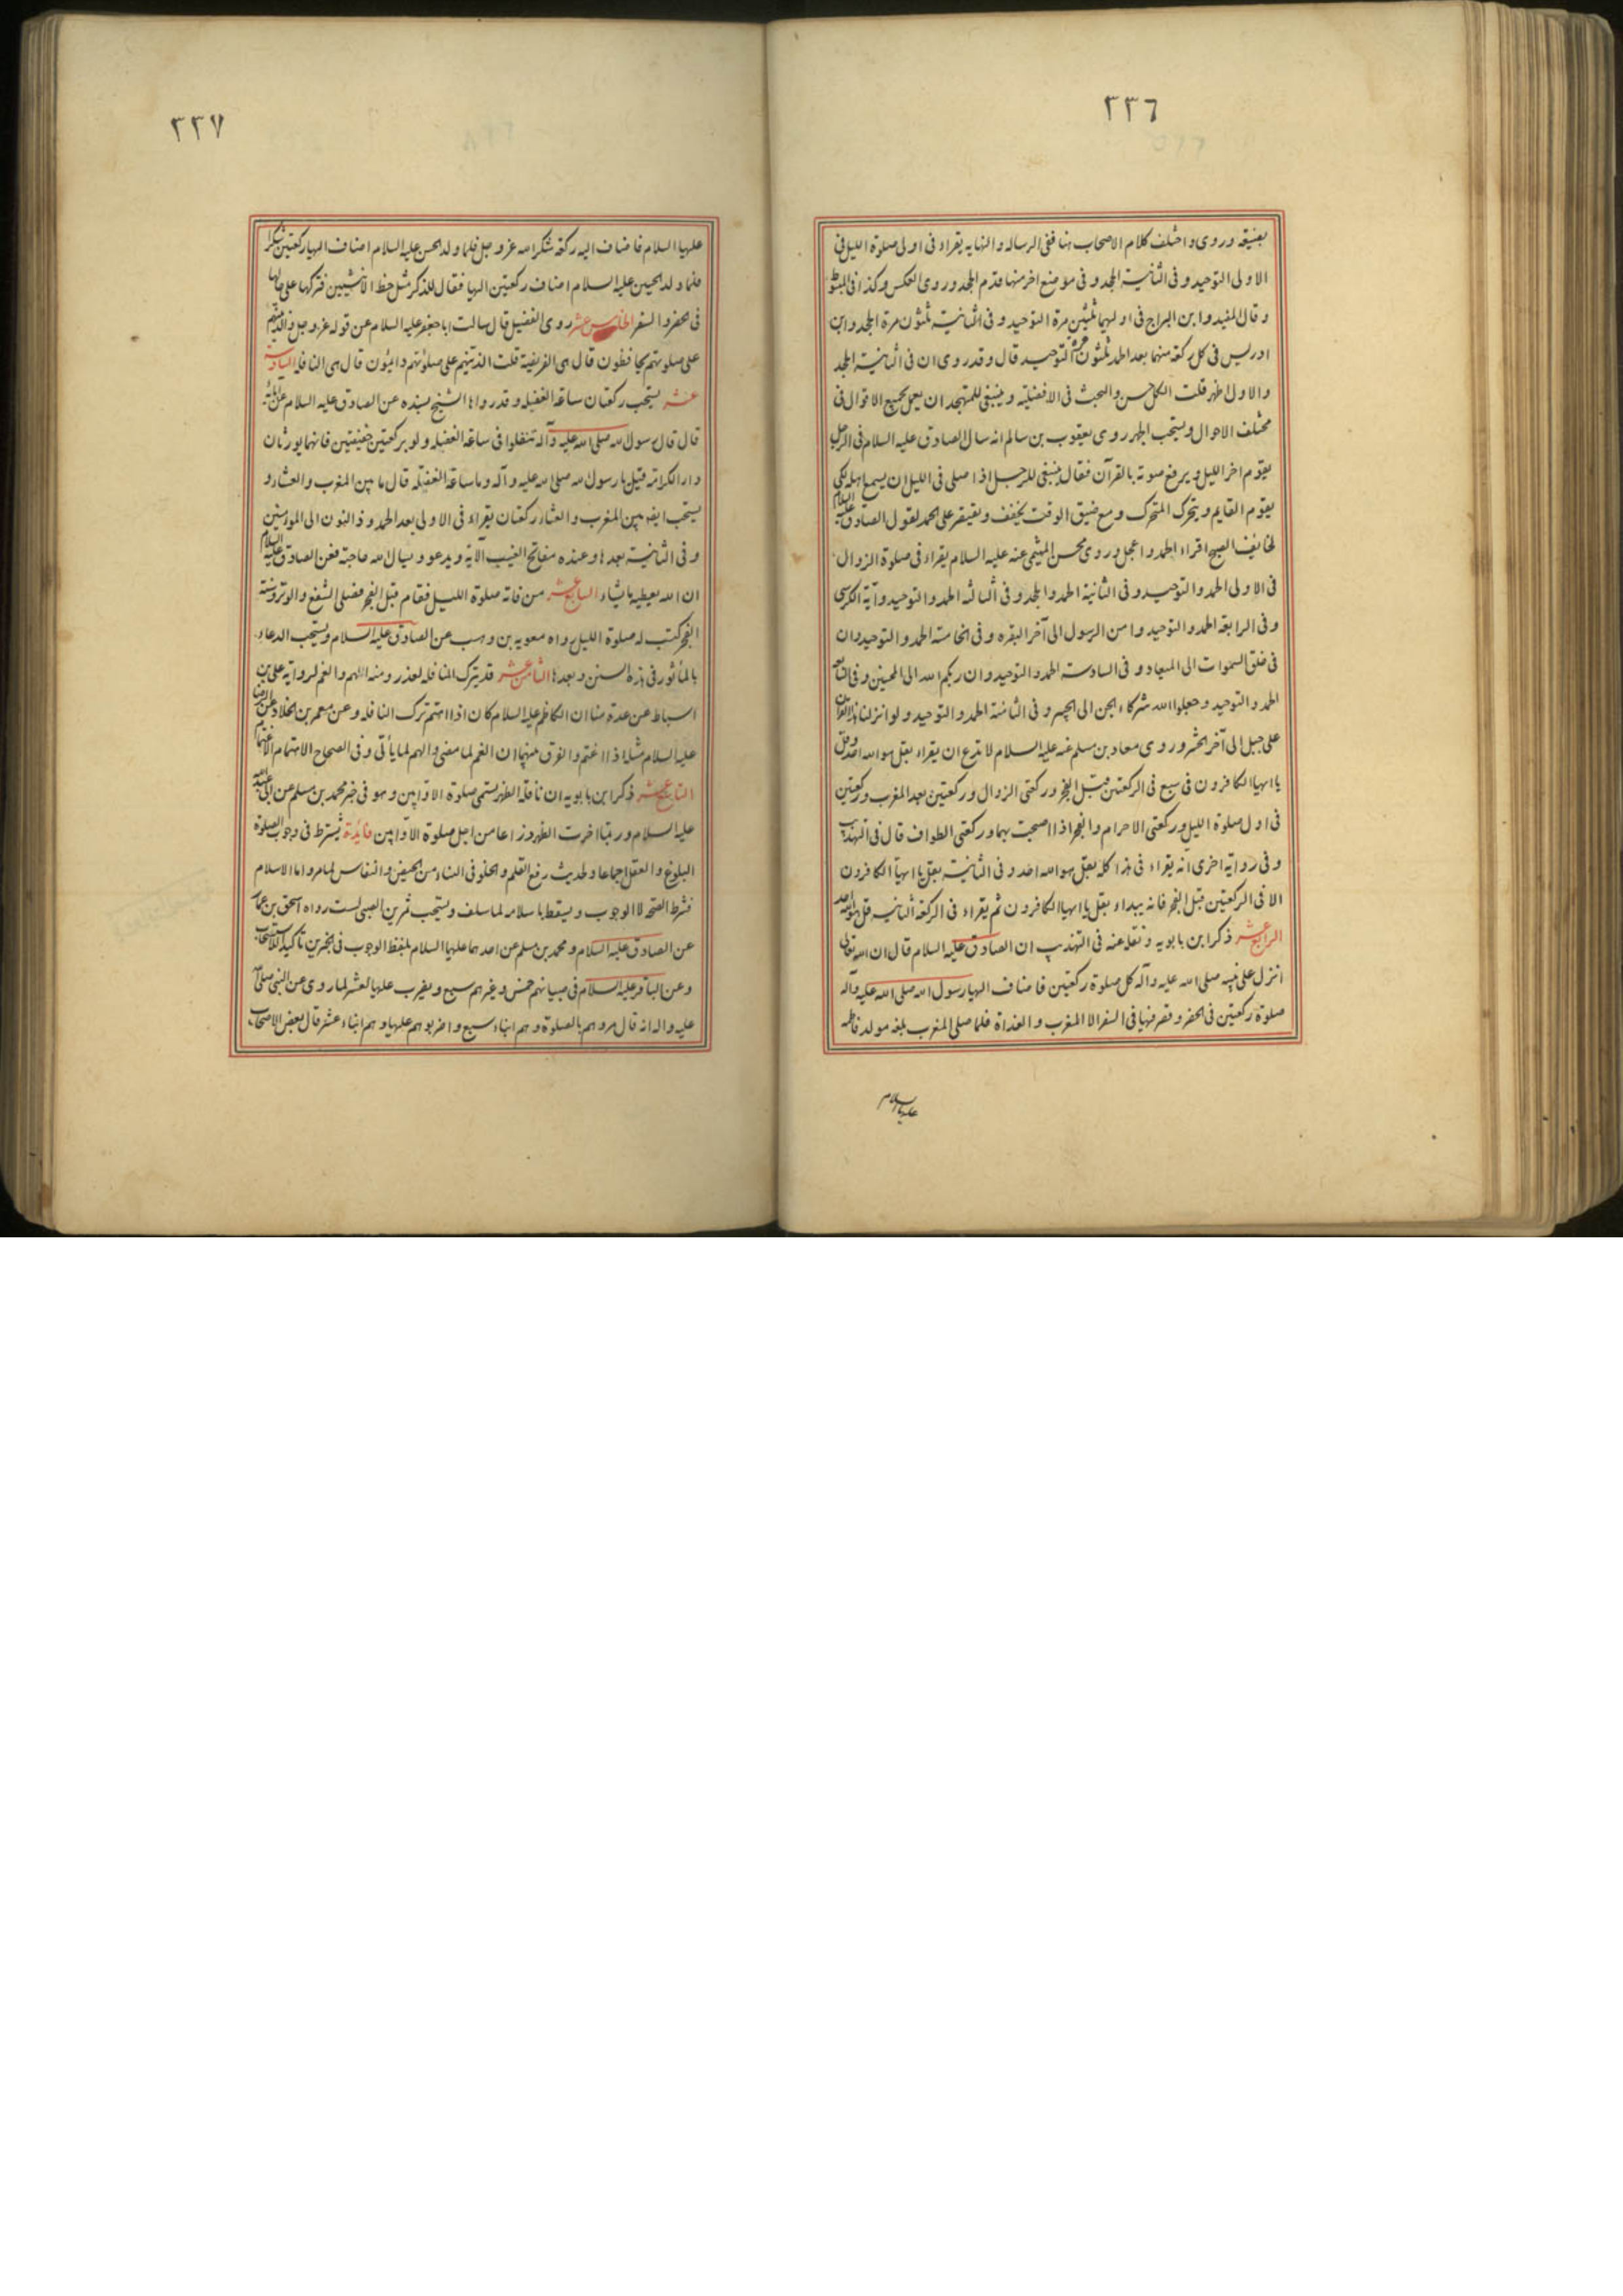 ٢٢٦
بعينيه وروى واختلف كلام الاصحاب هنا ففى الرسالة والنهاية يقراء فى اولى صلوة الليل فى
الاولى التوحيد وفى الثانية الجحد وفى موضع اخر منها قدم الجحد وروى العكس وكذا فى المبسوط
وقال المفيد وابن البراج فى اوليهما ثلثين مرة التوحيد وفى الثانية ثلثون مرة الجحد وابن
ادريس فى كل ركعة منهما بعد الحمد ثلثون مرة التوحيد قال وقد روى ان فى الثانية الجحد
والاول اظهر قلت الكل حسن والبحث فى الافضلية وينبغى للمتهجد ان يعمل بجميع الاقوال فى
مختلف الاحوال ويستحب الجهر روى يعقوب بن سالم انه سال الصادق عليه السلام فى الرجل
يقوم اخر الليل ويرفع صوته بالقرآن فقال ينبغى للرجل اذا صلى فى الليل ان يسمع اهله لكى
يقوم القايم ويتحرك المتحرك ومع ضيق الوقت يخفف ويقتصر على الحمد لقول الصادق عليه السلام
لخايف الصبح اقراء الحمد واعجل وروى محسن الميثمى عنه عليه السلام يقراء فى صلوة الزوال
فى الاولى الحمد والتوحيد وفى الثانية الحمد والجحد وفى الثالثه الحمد والتوحيد وآية الكرسى
وفى الرابعة الحمد والتوحيد وامن الرسول الى آخر البقره وفى الخامسة الحمد والتوحيد وان
فى خلق السموات الى الميعاد وفى السادسة الحمد والتوحيد وان ربكم الله الى المحسنين وفى السابعة
الحمد والتوحيد وجعلوا الله شركاء الجن الى الخبير وفى الثامنة الحمد والتوحيد ولو انزلنا هذا القرآن
على جبل الى آخر الحشر وروى معاذ بن مسلم عنه عليه السلام لا تدع ان يقراء بقل هو الله احد وقل
يا ايها الكافرون فى سبع فى الركعتين قبل الفجر وركعتى الزوال وركعتين بعد المغرب وركعتين
فى اول صلوة الليل وركعتى الاحرام والفجر اذا اصبحت بهما وركعتى الطواف قال فى التهذيب
وفى رواية اخرى انه يقراء فى هذا كله بقل هو الله احد وفى الثانية بقل يا ايها الكافرون
الا فى الركعتين قبل الفجر فانه يبداء بقل يا ايها الكافرون ثم يقراء فى الركعة الثانية قل هو الله احد
الرابع عشر ذكر ابن بابويه ونقله عنه فى التهذيب ان الصادق عليه السلام قال ان الله تعالى
انزل على نبيه صلى الله عليه وآله كل صلوة ركعتين فاضاف اليها رسول الله صلى الله عليه وآله
صلوة ركعتين فى الحضر وقصر فيها فى السفر الا المغرب والغداة فلما صلى المغرب بلغه مولد فاطمه
عليها السلام
٢٢٧
عليها السلام فاضاف اليه ركعة شكرا لله عز وجل فلما ولد الحسن عليه السلام اضاف اليها ركعتين شكرا
فلما ولد الحسين عليه السلام اضاف ركعتين اليها فقال للذكر مثل حظ الانثيين فتركها على حالها
فى الحضر والسفر الخامس عشر روى الفضيل قال سالت ابا جعفر عليه السلام عن قوله عز وجل والذينهم
على صلوتهم يحافظون قال هى الفريضة قلت الذينهم على صلوتهم دائمون قال هى النافله السادس
عشر يستحب ركعتان ساعة الغفيله وقد رواها الشيخ بسنده عن الصادق عليه السلام عن آبائه
قال قال رسول الله صلى الله عليه وآله تنفلوا فى ساعة الغفيله ولو بركعتين خفيفتين فانهما يورثان
دار الكرامة قيل يا رسول الله صلى الله عليه وآله وما ساعة الغفلة قال ما بين المغرب والعشاء و
يستحب ايضا بين المغرب والعشاء ركعتان يقراء فى الاولى بعد الحمد وذا النون الى المومنين
وفى الثانية بعدها وعنده مفاتح الغيب الآية ويدعو ويسال الله حاجته فعن الصادق عليه السلام
ان الله يعطيه ما يشاء السابع عشر من فاته صلوة الليل فقام قبل الفجر فصلى الشفع والوتر وسنة
الفجر كتب له صلوة الليل رواه معويه بن وهب عن الصادق عليه السلام ويستحب الدعاء
بالمأثور فى هذه السنن وبعدها الثامن عشر قد يترك النافله لعذر ومنه الهم والغم لرواية على بن
اسباط عن عدة منا ان الكاظم عليه السلام كان اذا اهتم ترك النافله وعن معمر بن خلاد عن الرضا
عليه السلام مثله اذا اغتم والفرق بينهما ان الغم لما مضى والهم لما يأتى وفى الصحاح الاهتمام الاغتمام
التاسع عشر ذكر ابن بابويه ان نافلة الظهر يسمى صلوة الاوابين وهو فى خبر محمد بن مسلم عن ابى عبد الله
عليه السلام وربما اخرت الظهر ذراعا من اجل صلوة الاوابين فائدة يشترط فى وجوب الصلوة
البلوغ والعقل اجماعا ولحديث رفع القلم والخلو فى النساء من الحيض والنفاس لما مر واما الاسلام
فشرط الصحة لا الوجوب ويسقط باسلامه لما سلف ويستحب تمرين الصبى لست رواه اسحق بن عمار
عن الصادق عليه السلام ومحمد بن مسلم عن احدهما عليهما السلام بلفظ الوجوب فى الخبرين تاكيدا للاستحباب
وعن الباقر عليه السلام فى صبيانهم خمس وغيرهم سبع ويضرب عليها لعشر لما روى عن النبى صلى الله
عليه واله انه قال مروهم بالصلوة وهم ابناء سبع واضربوهم عليها وهم ابناء عشر قال بعض الاصحاب